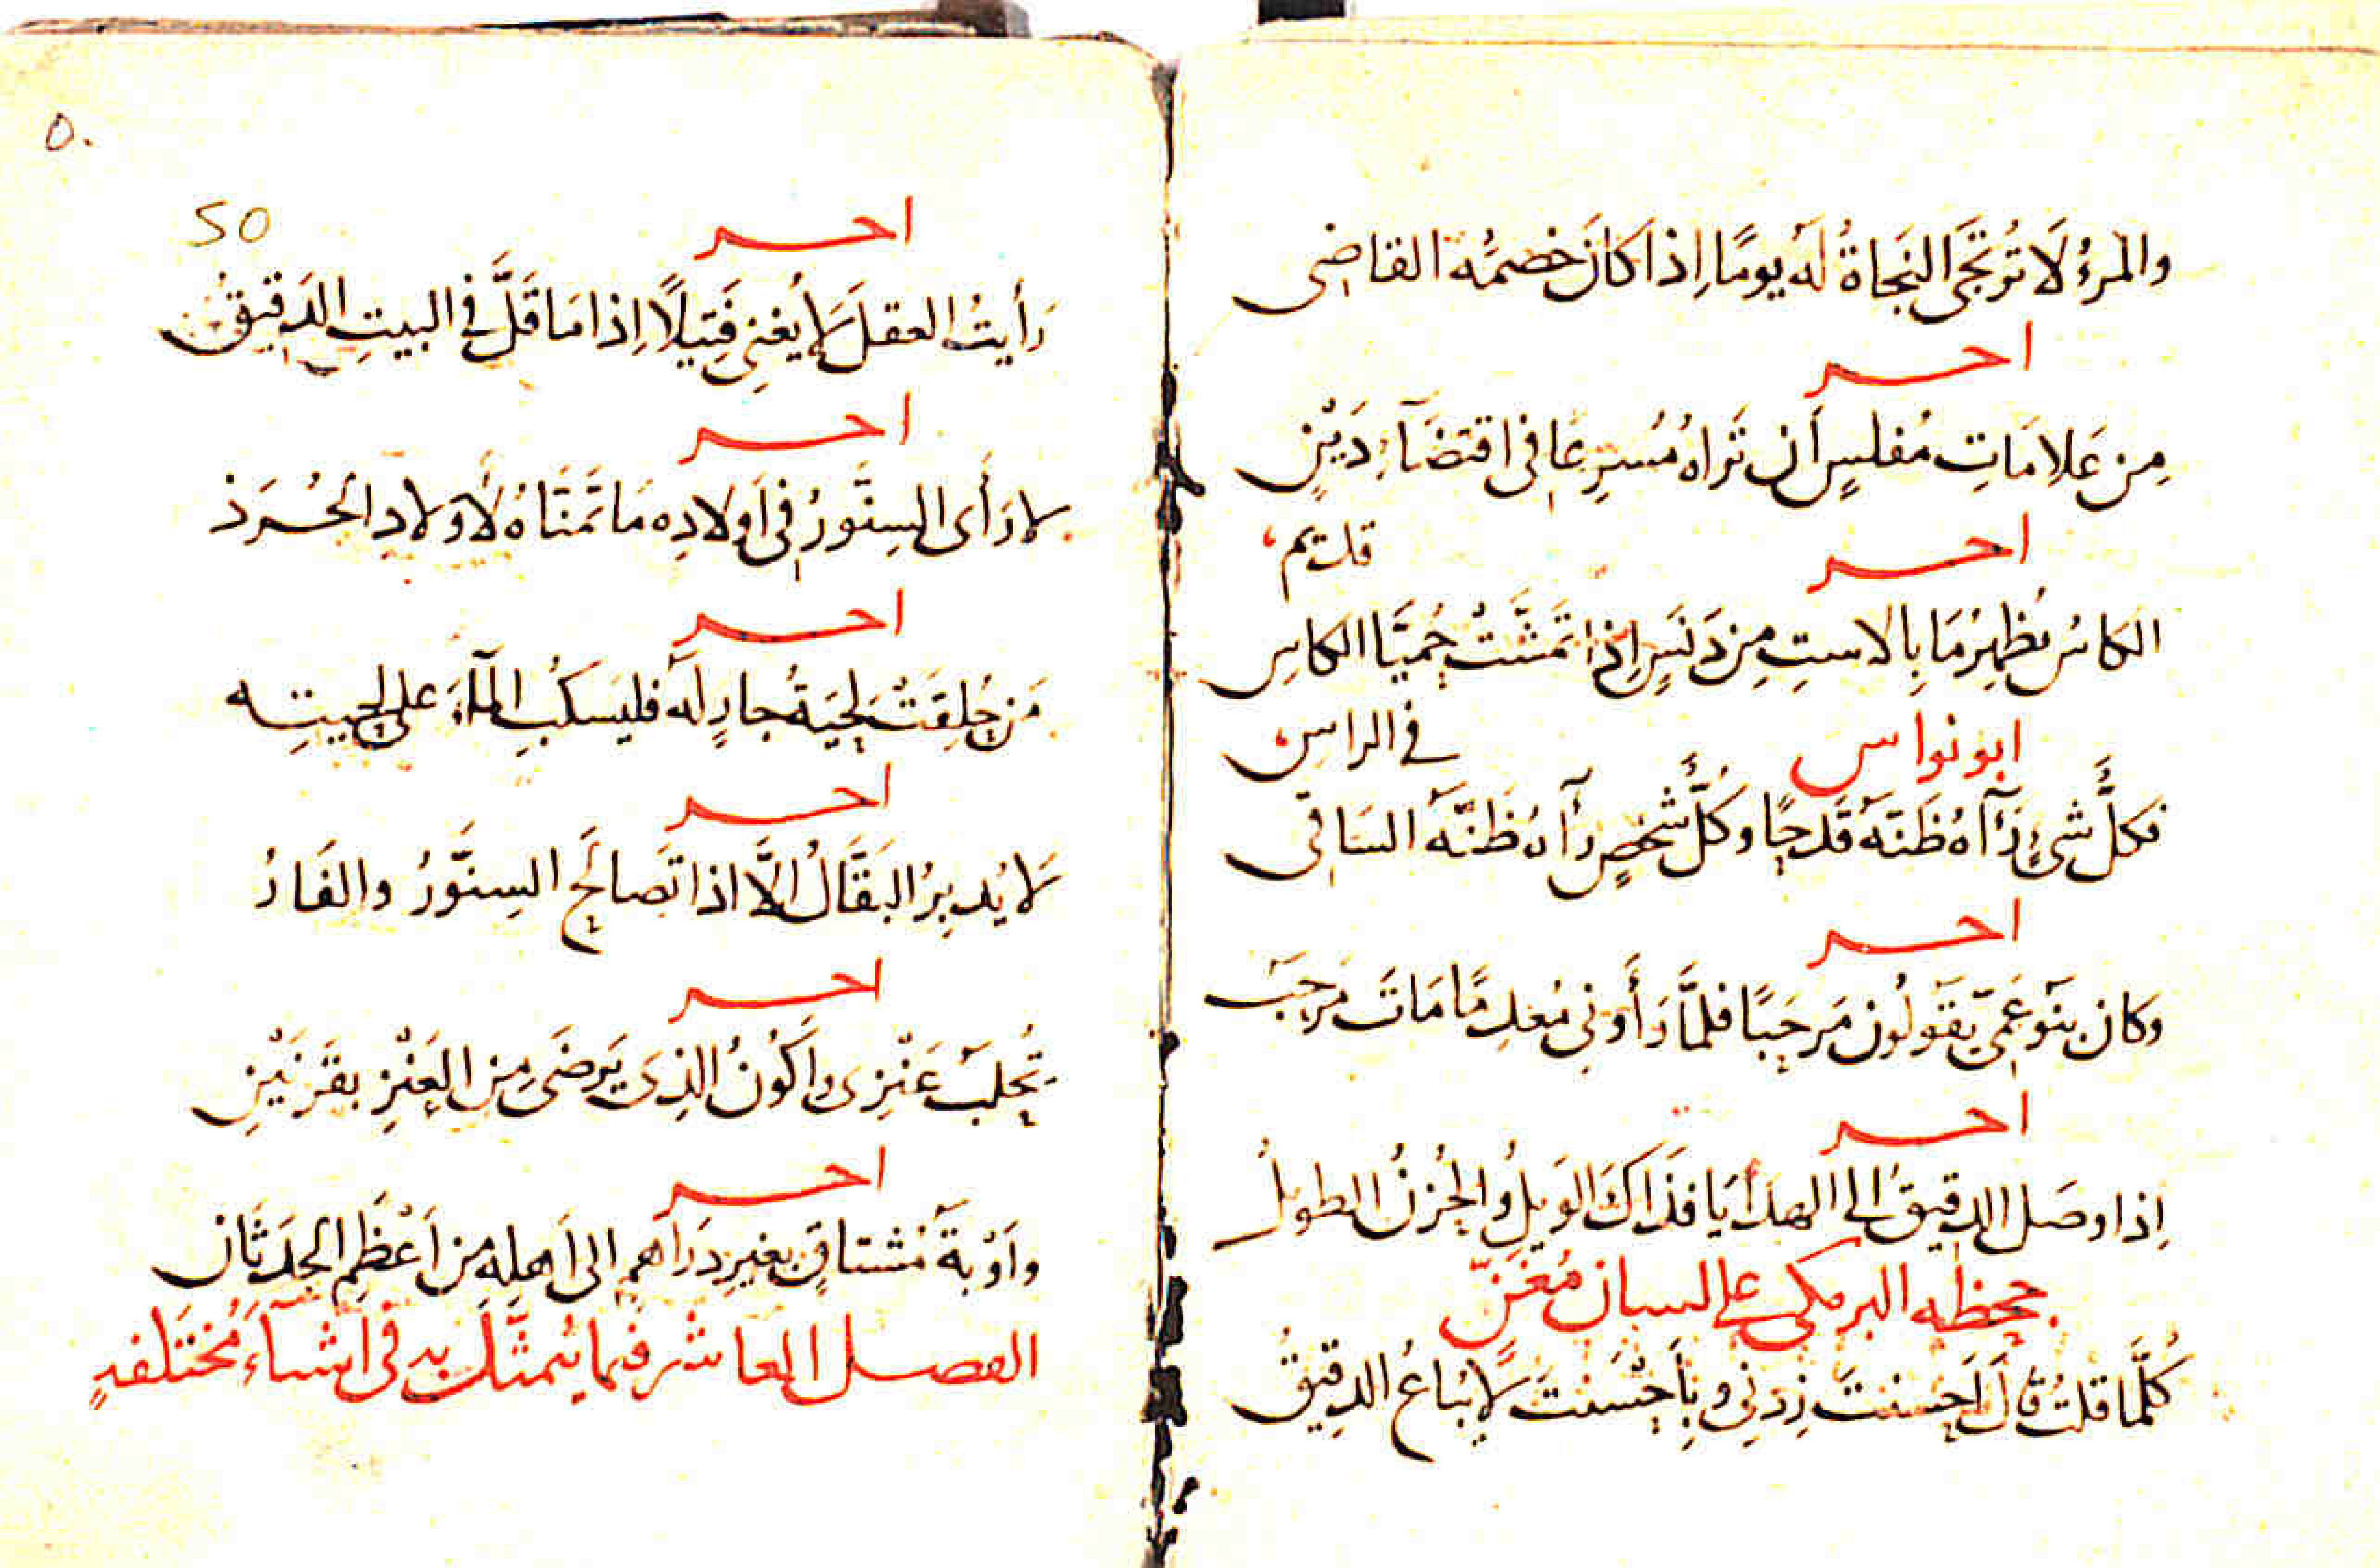 والمرءُ لَا تُرتَجَى النجَاةُ لَه يومًا اِذا كانَ خصمُه القاضِى
اخر
مِن عَلامَاتِ مُفلسٍ أن تَراهُ مُسرِعًا فى اقتضَآءِ دَيْنٍ
قديم
اخر
الكاسُ يُظهِرُ مَا بِالاستِ مِن دَنَسٍ اِذا تَمَشَّتْ حُمَيَّا الكاسِ
فى الراسِ
ابو نواس
فكلُّ شىءٍ رَآهُ ظَنَّهُ قَدحًا وكُلُّ شخصٍ رآهُ ظَنَّهُ السَاقى
اخر
وكان بنَو عَمىّ يَقَولُون مَرحَبًا فلمَّا رَأَونِى مُعدِمًا مَاتَ مَرحَبَ
اخر
اِذا وصَل الدقيقُ الى الهدَايَا فذَاكَ الوَيلُ والحُزنُ الطويلُ
جحظه البرمكى على لسان مُغَنّ
كُلَّما قلتُ قال اَحسنتَ زِدنِى وبِأَحْسَنتَ لَا يُباعُ الدقيقُ
٥٠
50
اخر
رَأيتُ العقلَ لَا يُغنِى فَتيلًا اِذا مَا قَلَّ فى البيتِ الدَقيقُ
اخر
لا رَأى السِنَّورُ فى اَولادِه مَا تَمَنَّاهُ لأَولادِ الجُرَذ
اخر
مَن حُلِقَتْ لِحيَةُ جارٍ لَه فليَسكُبِ المآءَ على لحييتِه
اخر
لَا يُدبِرُ البَقَّالُ الَّا اذا تَصالَح السِنَّورُ والفَارُ
اخر
تُحلَبَ عَنْزِى واَكُونُ الذِى يَرضَى مِن العَنْزِ بقَرنَيْنِ
اخر
واَوْبَةُ مُشتاقٍ بغيرِ دَرَاهمٍ الى اَهلِهِ مِن اَعْظَمِ الحِدَثَانِ
الفصل العاشر فيما يُتمثَّل به فى اشيآءَ مُختَلفةٍ